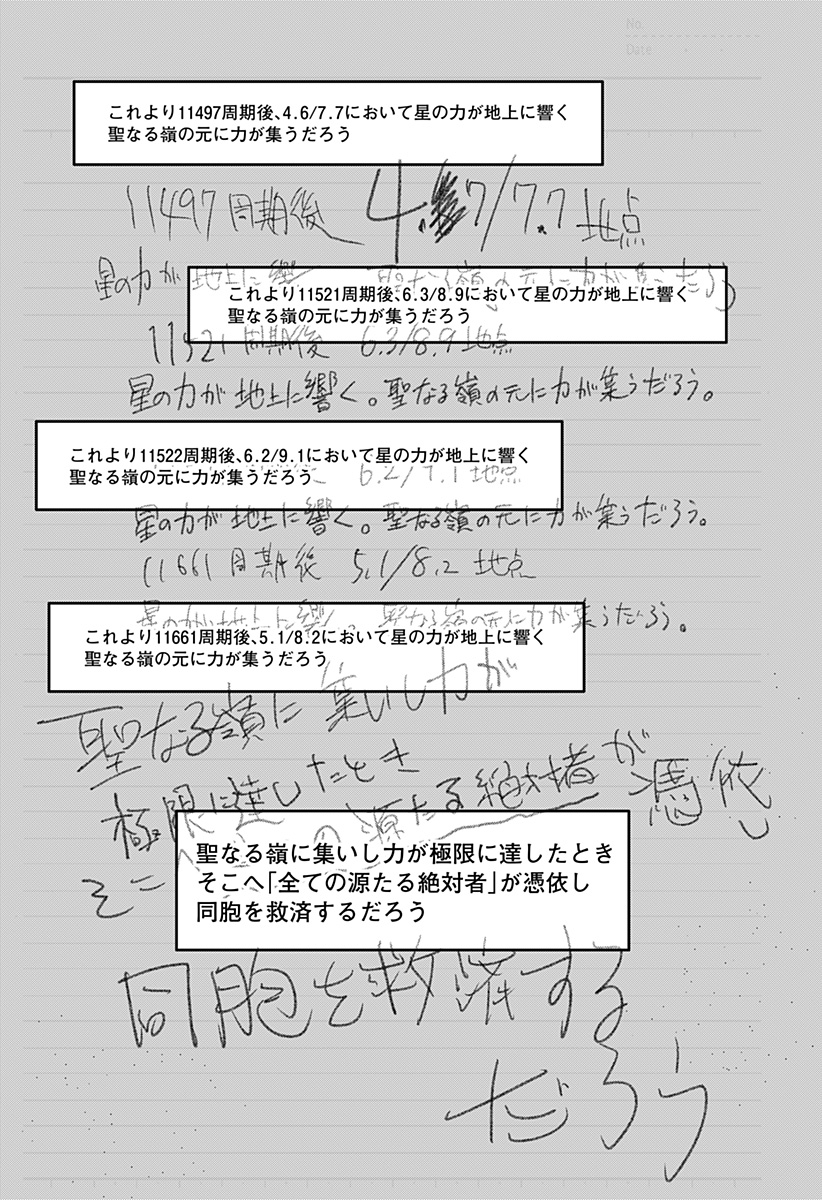 No.
Date
これより11497周期後、4.6/7.7において星の力が地上に響く
聖なる嶺の元に力が集うだろう
11497周期後 4.7/7.7地点
星の力が地上に響 聖なる嶺の元に力が集うだろう
これより11521周期後、6.3/8.9において星の力が地上に響く
聖なる嶺の元に力が集うだろう
11521周期後 6.3/8.9地点
星の力が地上に響く。聖なる嶺の元に力が集うだろう。
これより11522周期後、6.2/9.1において星の力が地上に響く
聖なる嶺の元に力が集うだろう
6.2/9.1地点
星の力が地上に響く。聖なる嶺の元に力が集うだろう。
11661周期後 5.1/8.2地点
星の力が地上に響 。聖なる嶺の元に力が集うだろう。
これより11661周期後、5.1/8.2において星の力が地上に響く
聖なる嶺の元に力が集うだろう
聖なる嶺に集いし力が
極限に達したとき
そこへ の源たる絶対者が憑依し
聖なる嶺に集いし力が極限に達したとき
そこへ「全ての源たる絶対者」が憑依し
同胞を救済するだろう
同胞を救済する
だろう